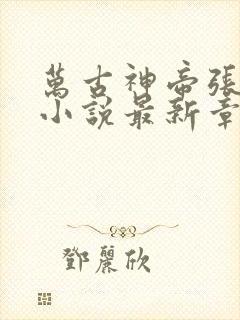 萬古神帝張
小說最新章
鄧麗欣